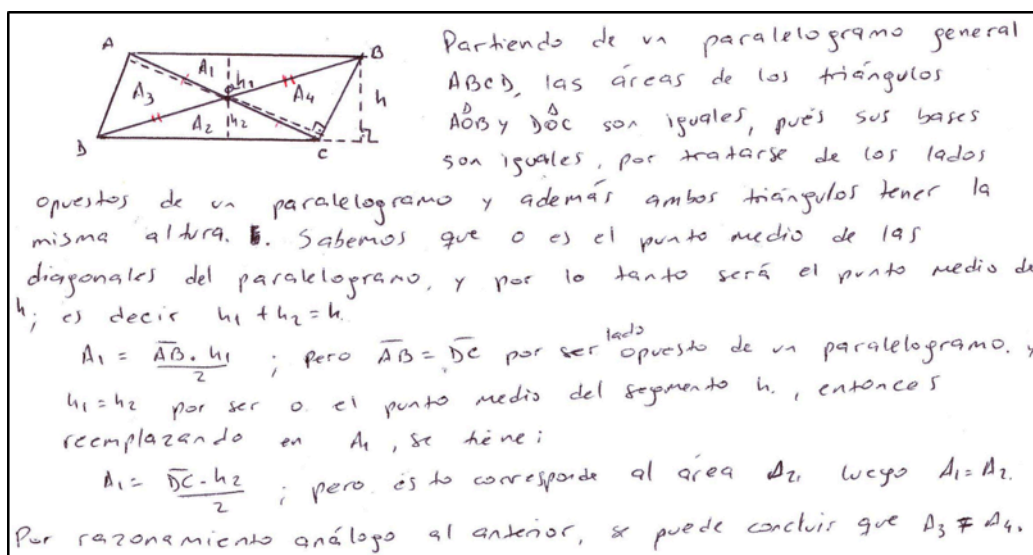 A
B
A₁
h₁
A₃
A₄
h
O
A₂
h₂
D
C
Partiendo de un paralelogramo general
ABCD, las áreas de los triángulos
AÔB y DÔC son iguales, pués sus bases
son iguales, por tratarse de los lados
opuestos de un paralelogramo y además ambos triángulos tener la
misma altura. Sabemos que o es el punto medio de las
diagonales del paralelogramo, y por lo tanto será el punto medio de
h; es decir h₁ + h₂ = h.
A₁ = AB · h₁ / 2 ; pero AB = DC por ser lado opuesto de un paralelogramo. y
h₁ = h₂ por ser o el punto medio del segmento h., entonces
reemplazando en A₁, se tiene:
A₁ = DC · h₂ / 2 ; pero ésto corresponde al área A₂, luego A₁ = A₂.
Por razonamiento análogo al anterior, se puede concluir que A₃ = A₄.